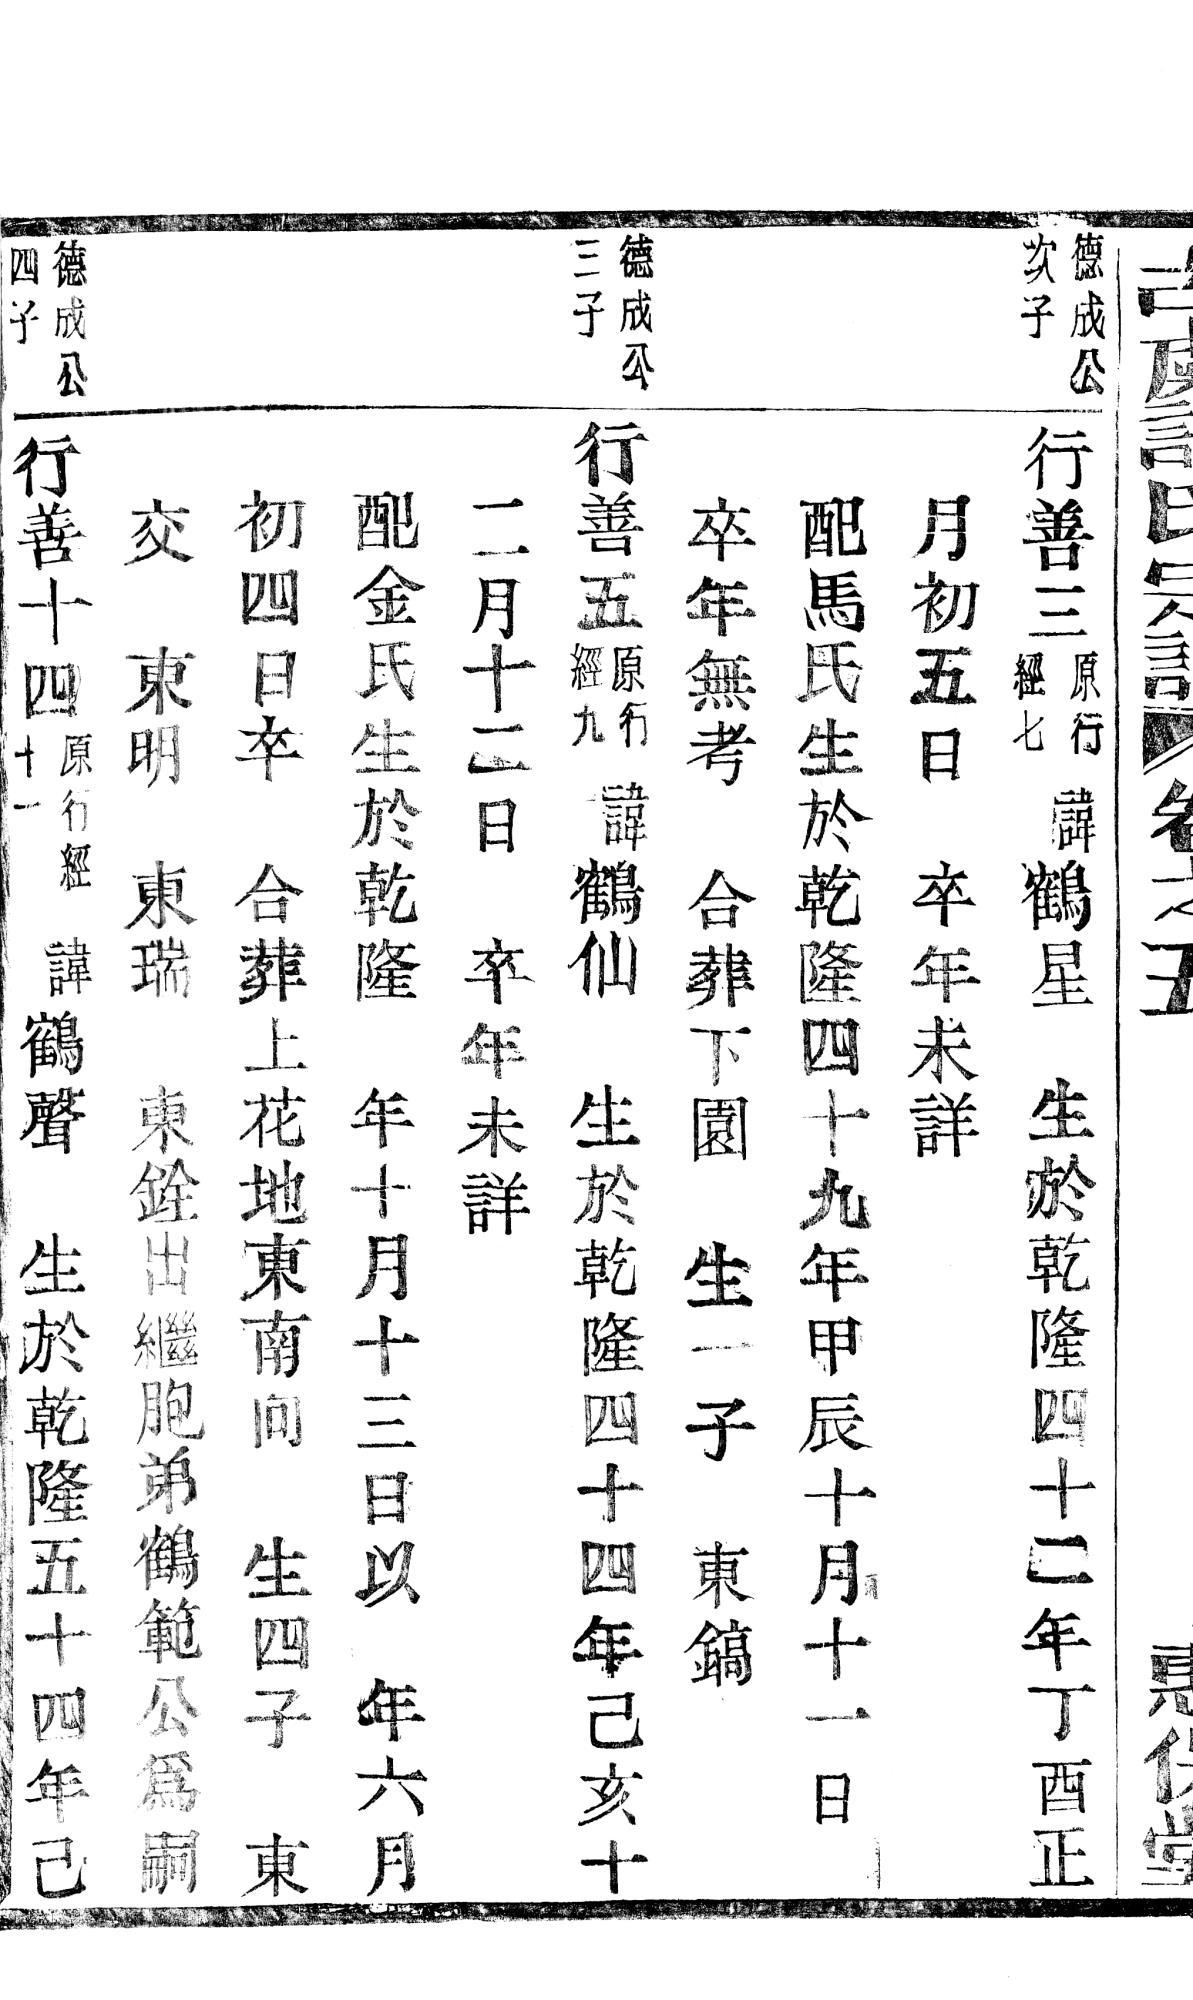 氏宗譜 卷之五 惠保堂
德成公
次子
行善三 原行經七 諱鶴星 生於乾隆四十二年丁酉正
月初五日 卒年未詳
配馬氏生於乾隆四十九年甲辰十月十一日
卒年無考 合葬下園 生一子 東鎬
德成公
三子
行善五 原行經九 諱鶴仙 生於乾隆四十四年己亥十
二月十二日 卒年未詳
配金氏生於乾隆 年十月十三日以 年六月
初四日卒 合葬上花地東南向 生四子 東
交 東明 東瑞 東銓出繼胞弟鶴範公爲嗣
德成公
四子
行善十四 原行經十一 諱鶴聲 生於乾隆五十四年己